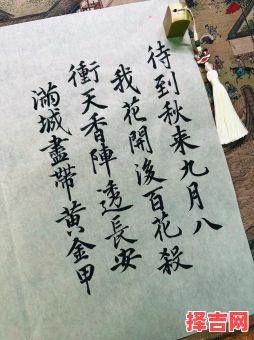 待到秋来九月八
我花開後百花殺
衝天香陣透長安
滿城盡帶黃金甲
择吉网